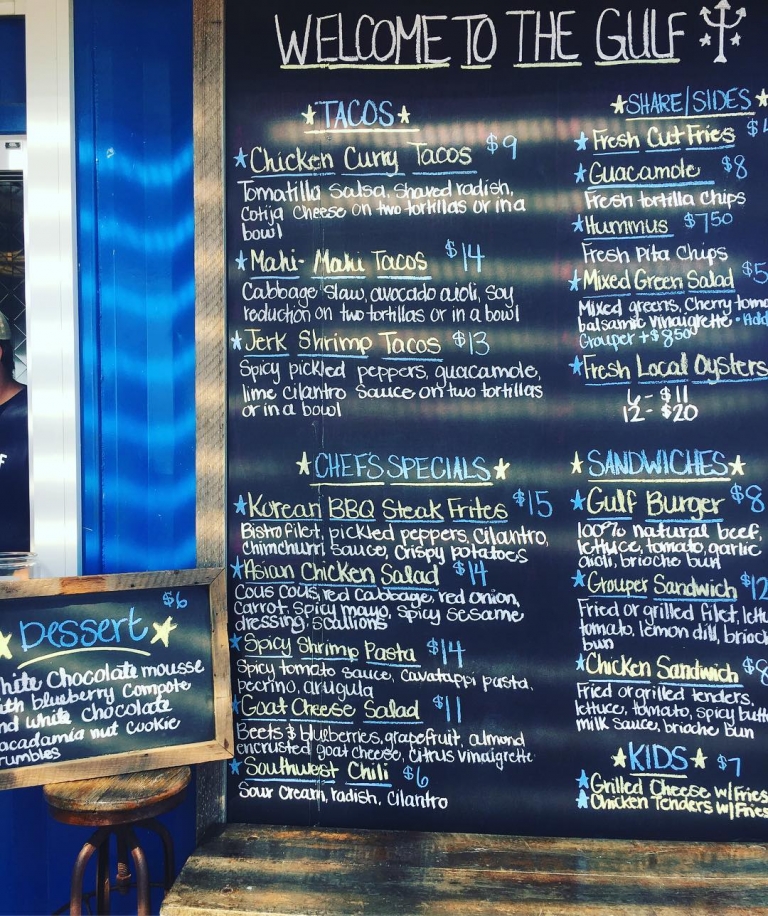 WELCOME TO THE GULF
TACOS
Chicken Curry Tacos $9
Tomatilla Salsa, Shaved radish,
Cotija Cheese on two tortillas or in a
bowl
Mahi-Mahi Tacos $14
Cabbage slaw, avocado aioli, soy
reduction on two tortillas or in a bowl
Jerk Shrimp Tacos $13
Spicy pickled peppers, guacamole,
lime cilantro sauce on two tortillas
or in a bowl
CHEFS SPECIALS
Korean BBQ Steak Frites $15
Bistro filet, pickled peppers, cilantro,
chimchurri sauce, crispy potatoes
Asian Chicken Salad $14
Cous cous, red cabbage, red onion,
carrot, spicy mayo, spicy sesame
dressing, scallions
Spicy Shrimp Pasta $14
Spicy tomato sauce, cavatappi pasta,
pecrino, arugula
Goat Cheese Salad $11
Beets & blueberries, grapefruit, almond
encrusted goat cheese, citrus vinaigrette
Southwest Chili $6
Sour cream, radish, cilantro
SHARE/SIDES
Fresh Cut Fries $4
Guacamole $8
Fresh tortilla chips
Hummus $7.50
Fresh Pita Chips
Mixed Green Salad $5
Mixed greens, Cherry toma
balsamic vinaigrette • Add
Grouper +$8.50
Fresh Local Oysters
6- $11
12- $20
SANDWICHES
Gulf Burger $8
100% natural beef,
lettuce, tomato, garlic
aioli, brioche bun
Grouper Sandwich $12
Fried or grilled filet, lettu
tomato, lemon dill, brioch
bun
Chicken Sandwich $8
Fried or grilled tenders,
lettuce, tomato, spicy butt
milk sauce, brioche bun
KIDS $7
Grilled Cheese w/Fries
Chicken Tenders w/Fries
$6
Dessert
hite Chocolate mousse
ith blueberry compote
nd white chocolate
acadamia nut cookie
rumbles